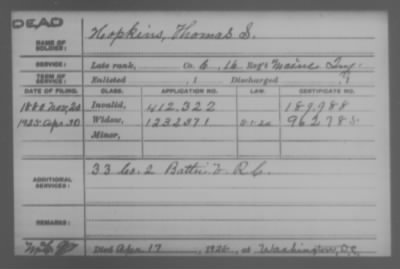 DEAD
NAME OF SOLDIER: Hopkins, Thomas S.
SERVICE: Late rank, Co. C, 16 Reg't Maine Inf.
TERM OF SERVICE: Enlisted , 1 Discharged , 1
DATE OF FILING. CLASS. APPLICATION NO. LAW. CERTIFICATE NO.
1880 Nov, 20 Invalid, 412,322 189,988
1925 Apr. 30 Widow, 1232371 962785
Minor,
ADDITIONAL SERVICES: 33 Co. 2 Batt'n V. R. C.
REMARKS:
Died Apr 17, 1925, at Washington, D.C.